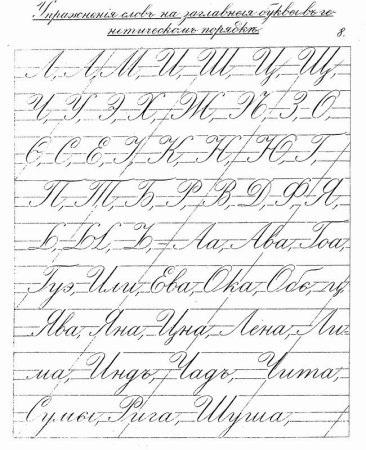 Упражненія словъ на заглавныя буквы въ ге-
нетическомъ порядкѣ.
8.
Л, А, М, И, Ш, Ц, Щ,
Ч, У, Э, Х, Ж, З, О,
Є, С, Е, І, К, Н, Ю, Г,
П, Т, Б, Р, В, D, Ф, Я,
Ь, Ы, Ъ – Аа, Ава, Гоа,
Гуэ, Или, Ева, Ока, Обь,
Ява, Яна, Цна, Лена, Ли-
ма, Индъ, Чадъ, Чита,
Сумы, Рига, Шуша,